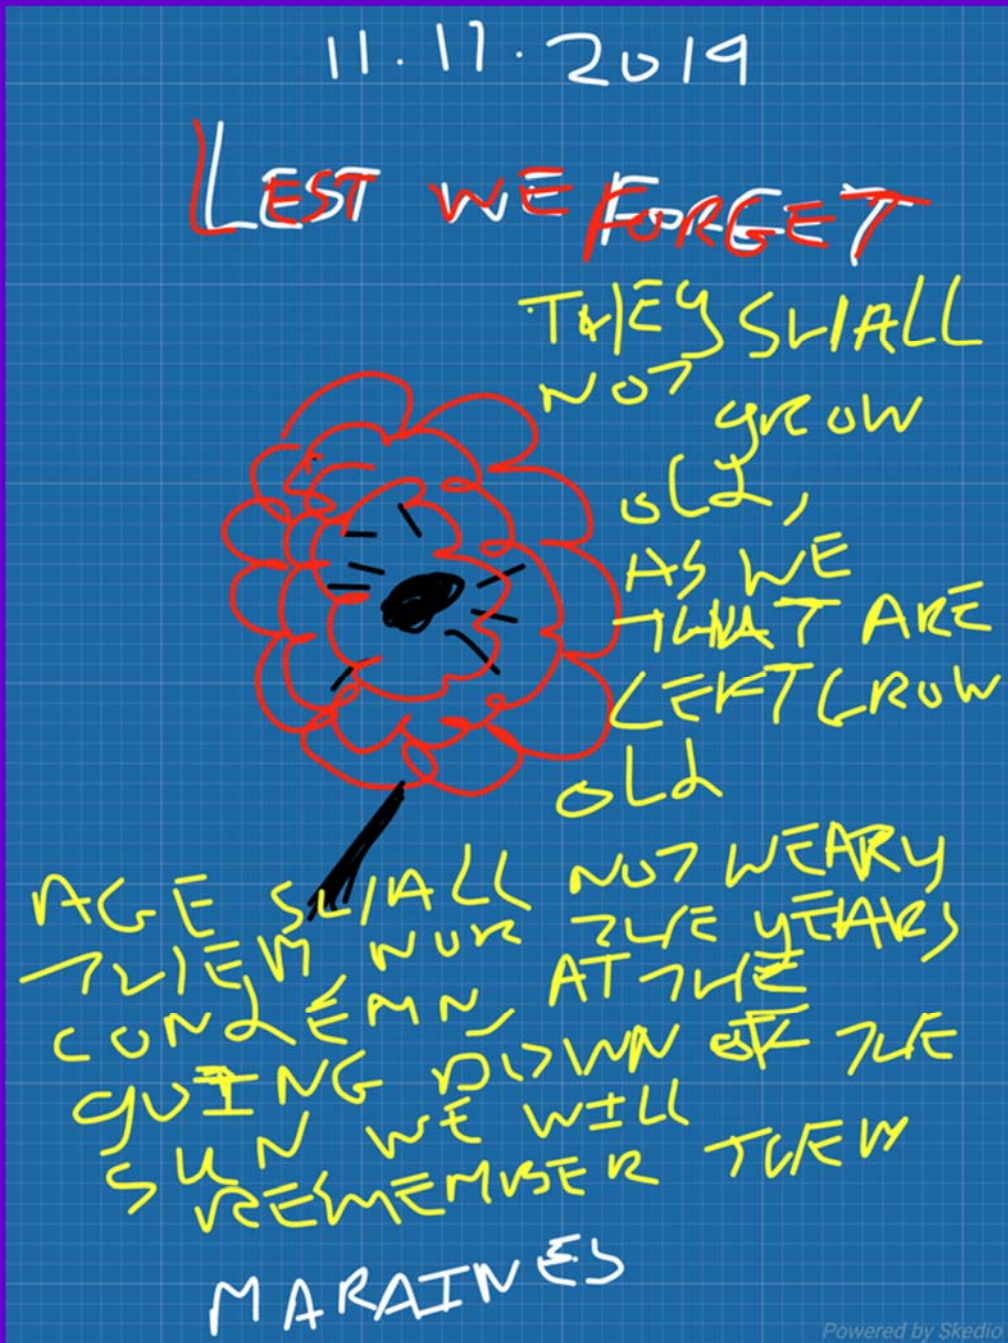 11.11.2019
LEST WE FORGET
THEY SHALL
NOT
grow
old,
AS WE
THAT ARE
LEFT GROW
OLd
AGE SHALL NOT WEARY
THEM, NOR THE YEARS
CONdEMN, AT THE
gOING DOWN OF THE
SUN WE WILL
REMEMBER THEM
MARAINES
Powered by Skedio